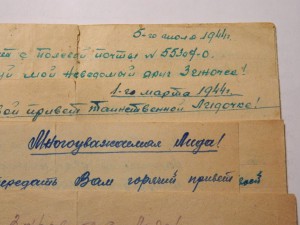 5-го июля 1944г.
Полевой почты №
мой неведомый друг Женечка!
1-го марта 1944г.
привет таинственной Лидочке!
Многоуважаемая Лида!
передать Вам горячий привет